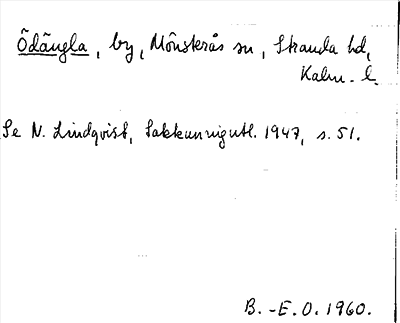 Ödängla, by, Mönsterås sn, Stranda hd,
Kalm. l.
Se N. Lindqvist, Sakkunnigutl. 1947, s. 51.
B.-E. O. 1960.